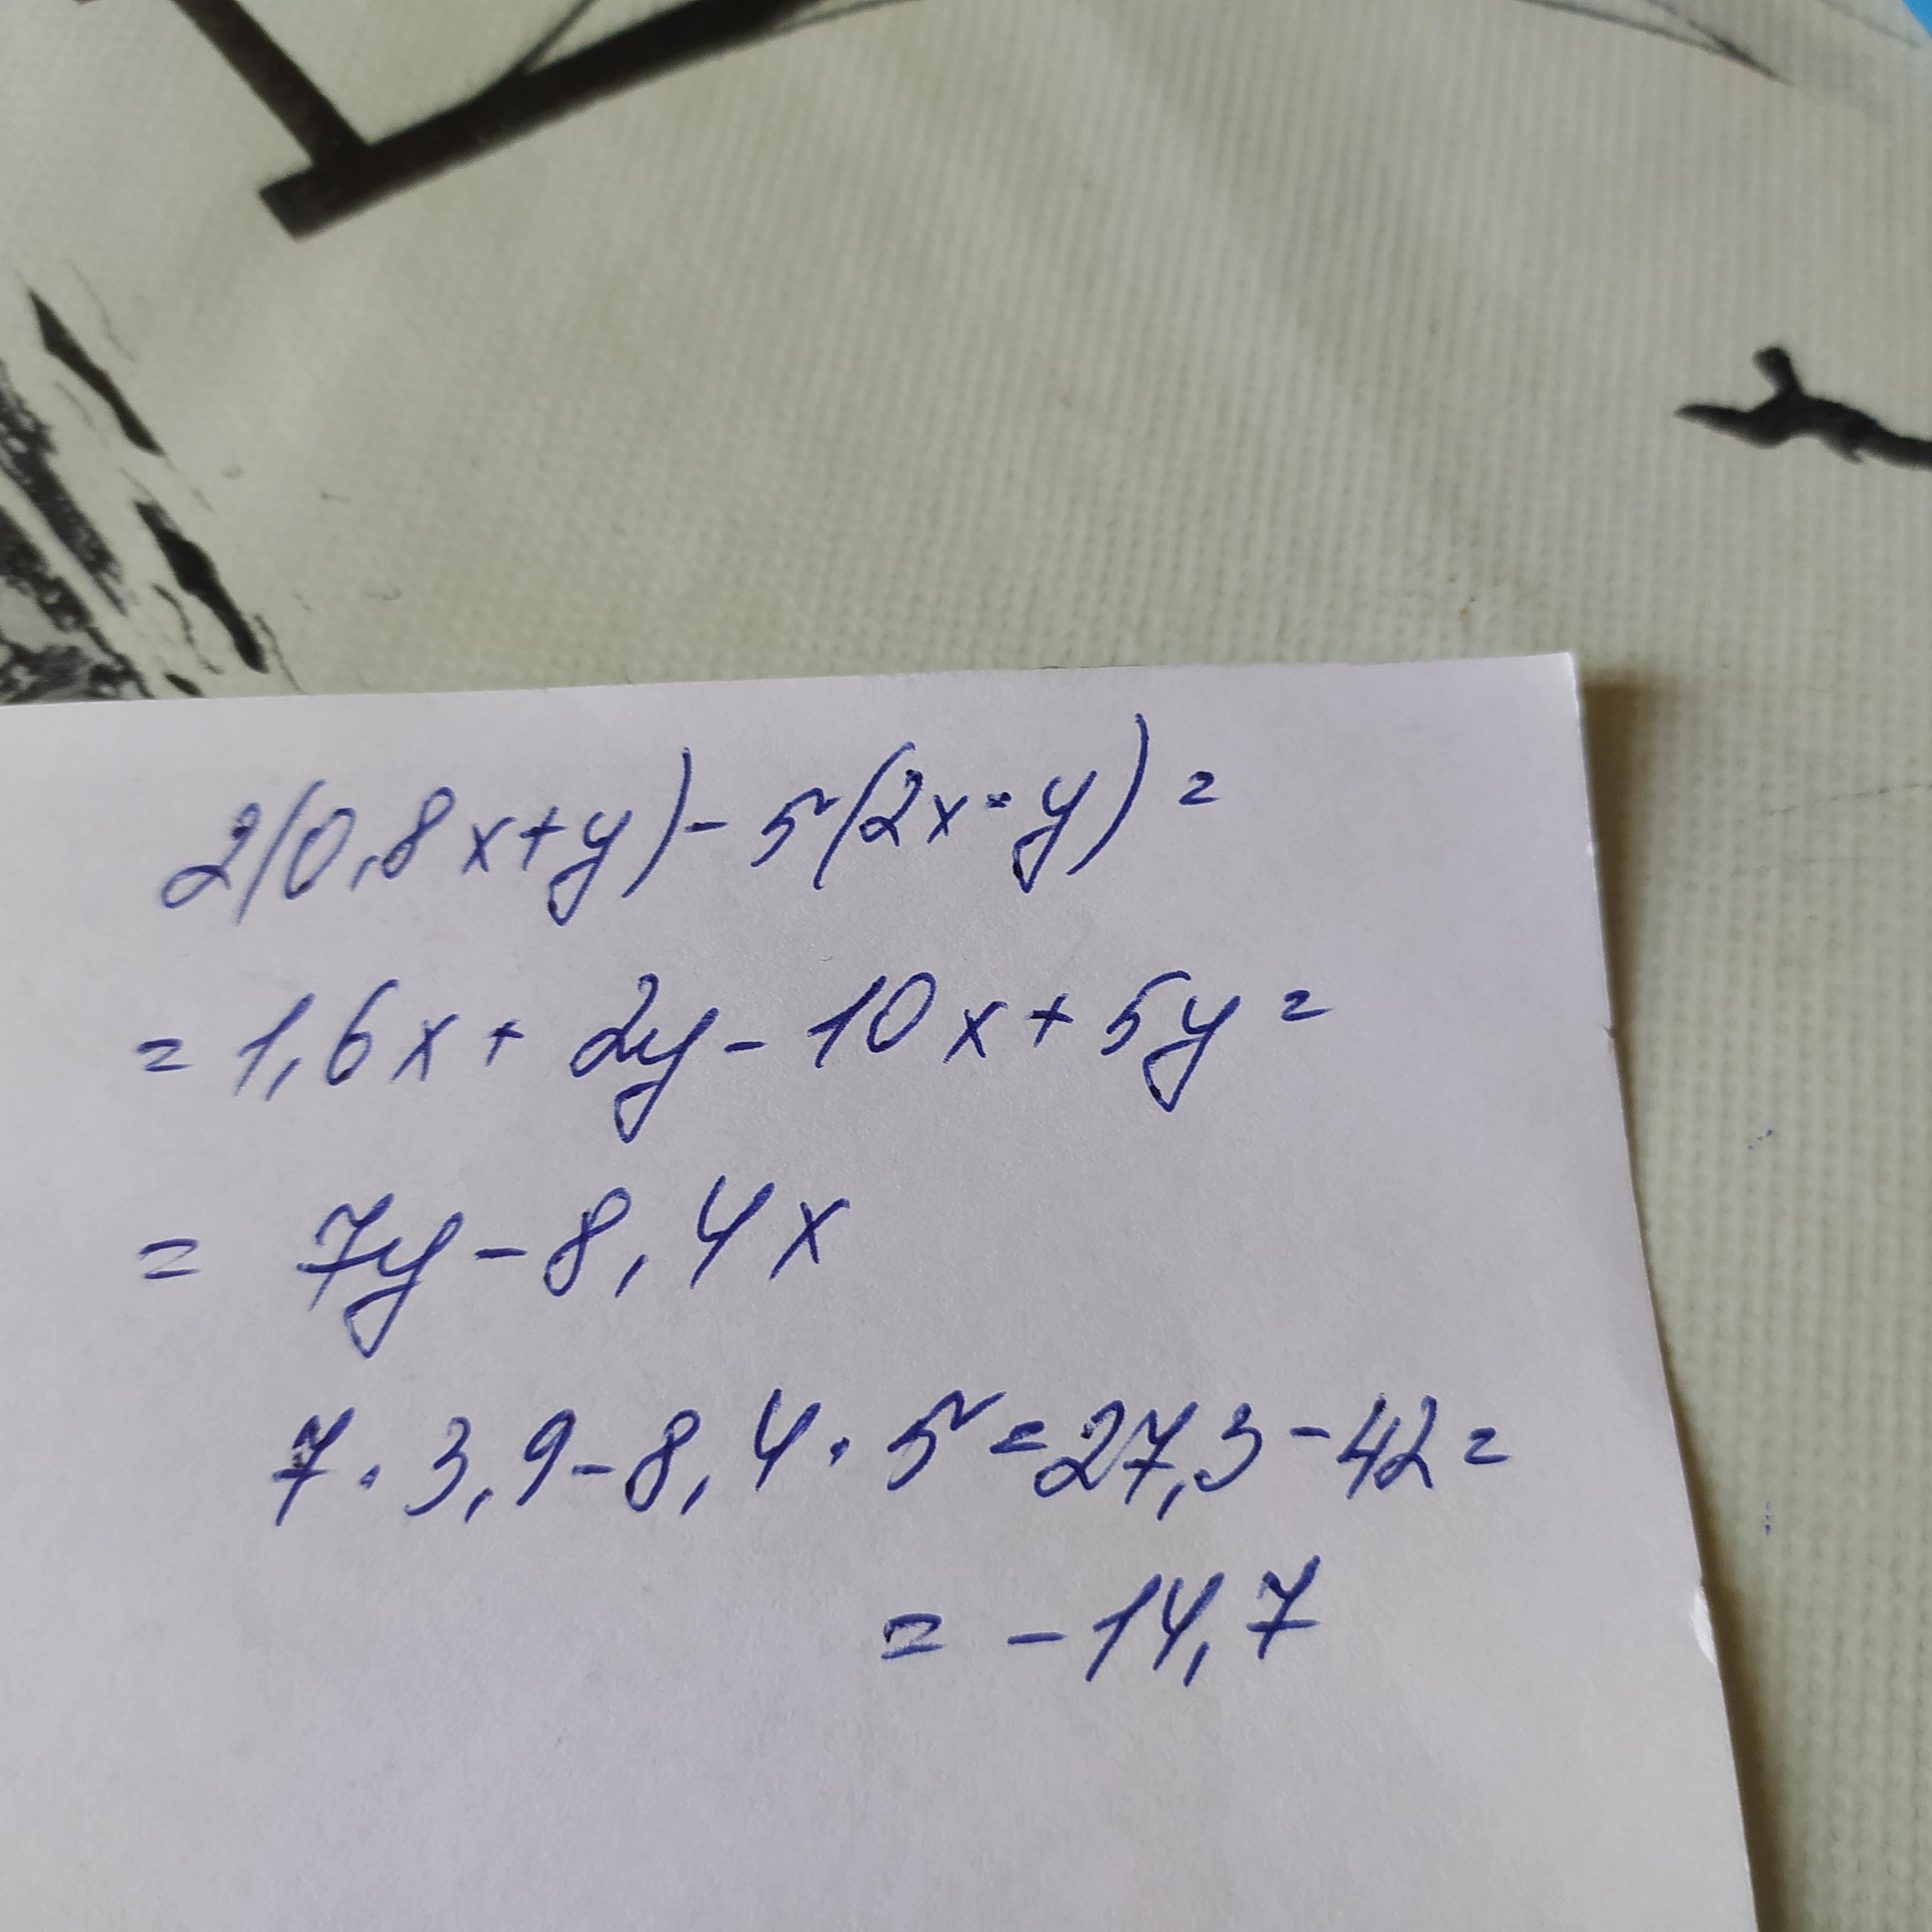 2(0,8x+y)-5(2x-y)=
=1,6x+2y-10x+5y=
=7y-8,4x
7·3,9-8,4·5=27,3-42=
=-14,7